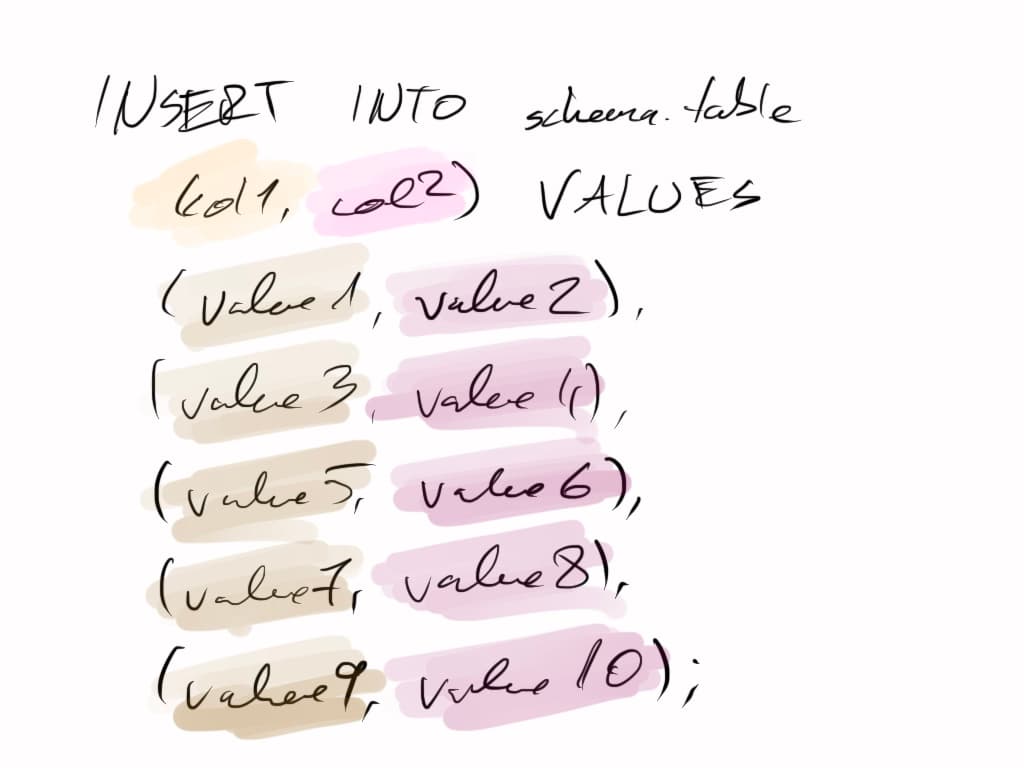 INSERT INTO schema.table
(col1, col2) VALUES
(value1, value2),
(value3, value4),
(value5, value6),
(value7, value8),
(value9, value10);